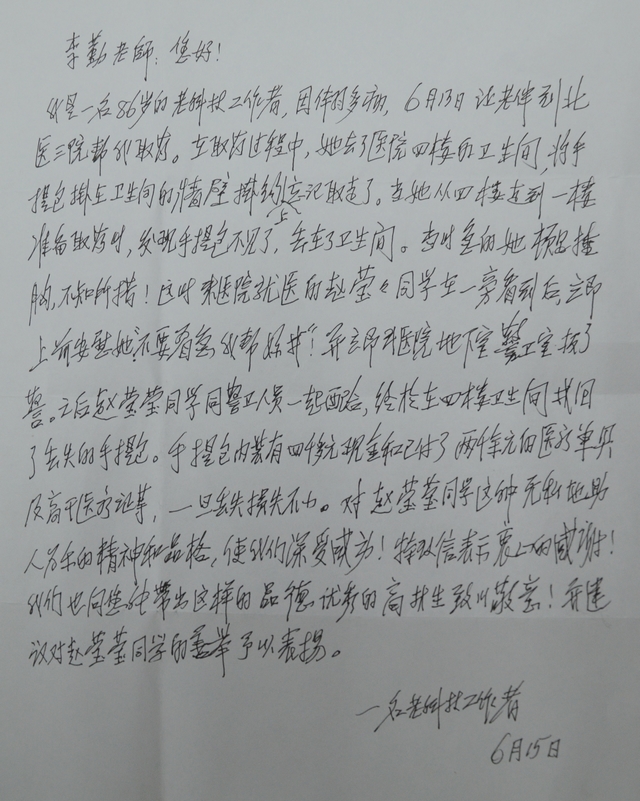 李勤老師：您好！
我是一名86岁的老科技工作者，因体弱多病，6月13日让老伴到北
医三院帮我取药。在取药过程中，她去了医院四楼的卫生间，将手
提包掛在卫生间的墙壁掛钩上忘记取走了。当她从四楼走到一楼
准备取药时，发现手提包不见了，丢在了卫生间。当时急的她顿足捶
胸，不知所措！这时来医院就医的赵莹々同学在一旁看到后，立即
上前安慰她“不要着急我帮你找”！并立即到医院地下室警卫室报了
警。之后赵莹莹同学同警卫人员一起配合，终於在四楼卫生间找回
了丢失的手提包。手提包内装有四仟多元现金和已付了两仟余元的医疗单具
及高干医疗证等，一旦丢失损失不小。对赵莹莹同学这种无私地助
人为乐的精神和品格，使我们深受感动！特致信表示衷心的感谢！
我们也向您能带出这样的品德优秀的高材生致以敬意！并建
议对赵莹莹同学的善举予以表扬。
一名老科技工作者
6月15日